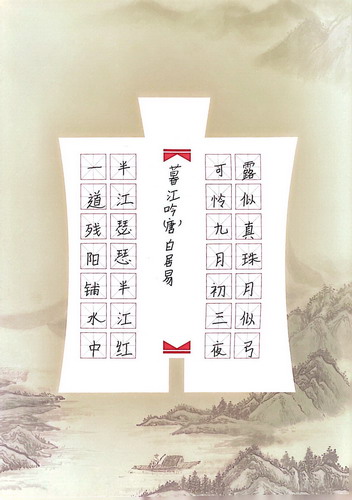 暮江吟(唐)白居易
一道残阳铺水中
半江瑟瑟半江红
可怜九月初三夜
露似真珠月似弓